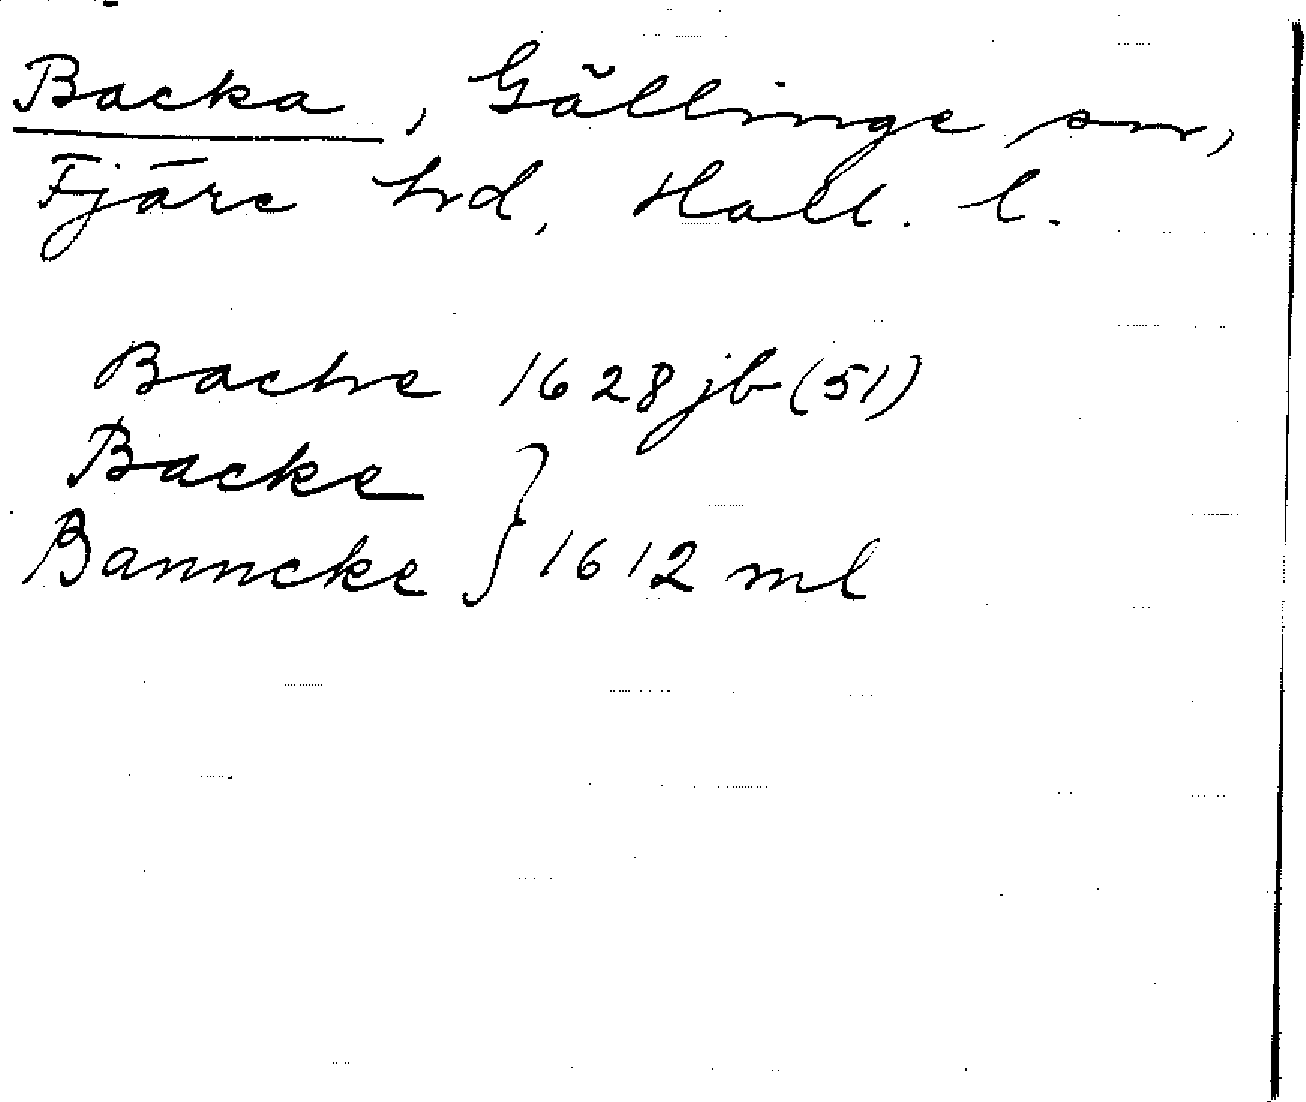 Backa, Gällinge sn,
Fjäre hrd, Hall. l.
Bache 1628 jb (51)
Backe
Banncke } 1612 ml